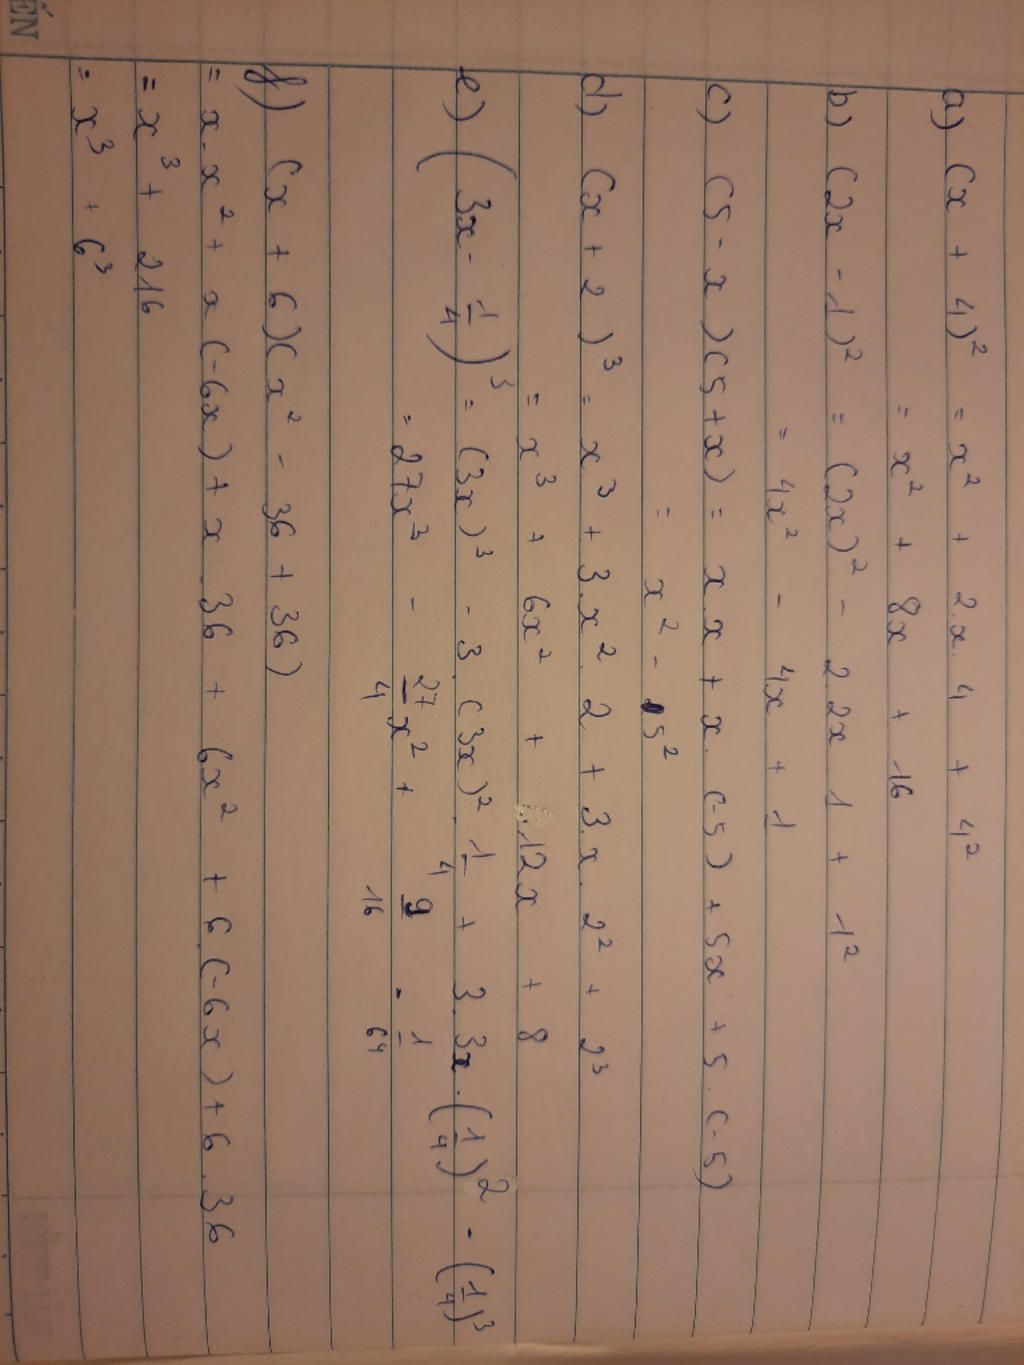 a) (x + 4)² = x² + 2.x.4 + 4²
= x² + 8x + 16
b) (2x - 1)² = (2x)² - 2.2x.1 + 1²
= 4x² - 4x + 1
c) (5 - x)(5+x) = x.x + x.(-5) + 5x + 5.(-5)
= x² - 5²
d) (x + 2)³ = x³ + 3.x².2 + 3.x.2² + 2³
= x³ + 6x² + 12x + 8
e) (3x - 1/4)³ = (3x)³ - 3.(3x)².1/4 + 3.3x.(1/4)² - (1/4)³
= 27x³ - 27/4 x² + 9/16 - 1/64
f) (x + 6)(x² - 36 + 36)
= x.x² + x(-6x) + x.36 + 6x² + 6.(-6x) + 6.36
= x³ + 216
= x³ + 6³
ẾN